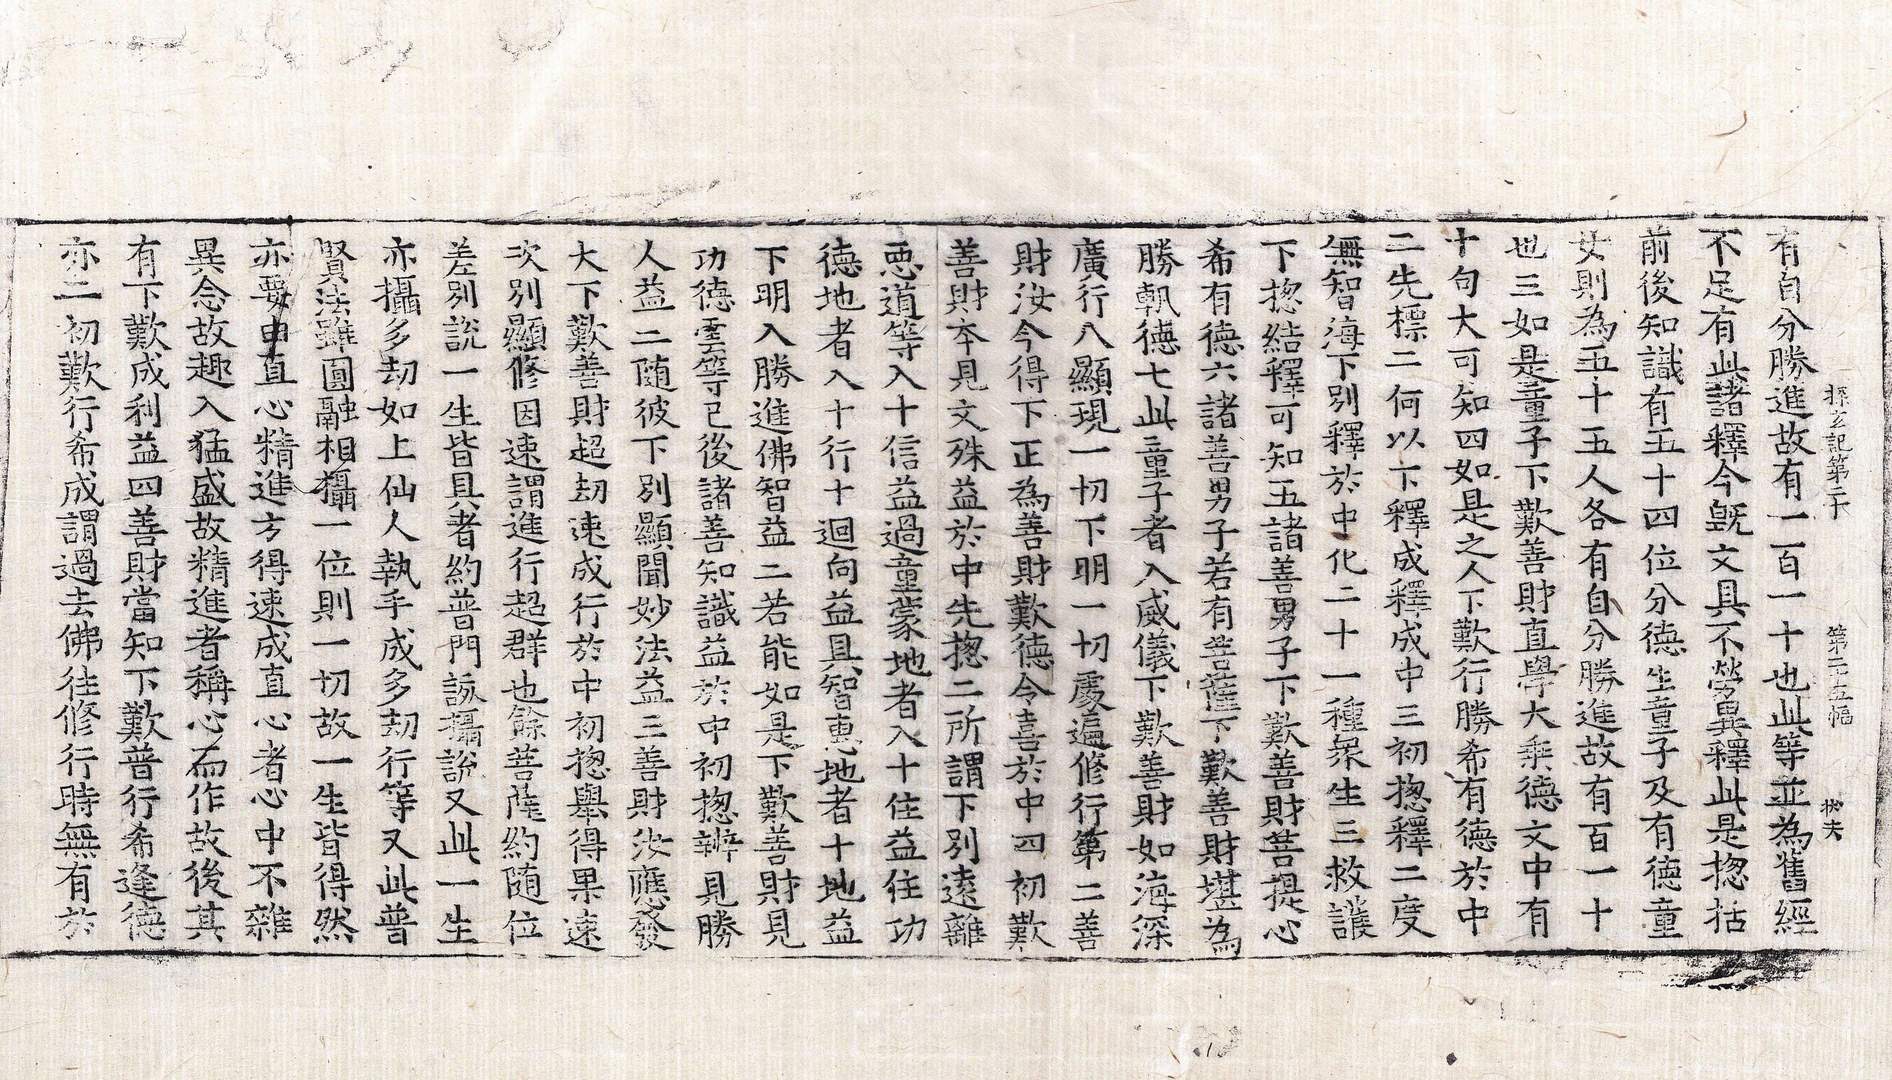 探玄記第二十 第二十五幅 火夫
有自分勝進故有一百一十也此等並為舊經
不足有此諸釋今旣文具不勞異釋此是揔括
前後知識有五十四位分德生童子及有德童
女則為五十五人各有自分勝進故有百一十
也三如是童子下歎善財直學大乘德文中有
十句大可知四如是之人下歎行勝希有德於中
二先標二何以下釋成釋成中三初揔釋二度
無智海下別釋於中化二十一種衆生三救護
下揔結釋可知五諸善男子下歎善財菩提心
希有德六諸善男子若有菩薩下歎善財堪為
勝軌德七此童子者入威儀下歎善財如海深
廣行八顯現一切下明一切處遍修行第二善
財汝今得下正為善財歎德令喜於中四初歎
善財本見文殊益於中先揔二所謂下別遠離
惡道等入十信益過童蒙地者入十住益住功
德地者入十行十迴向益具智惠地者十地益
下明入勝進佛智益二若能如是下歎善財見
功德雲等已後諸善知識益於中初揔辨見勝
人益二随彼下別顯聞妙法益三善財汝應發
大下歎善財超劫速成行於中初揔舉得果速
次別顯修因速謂進行超群也餘菩薩約随位
差別說一生皆具者約普門詠攝說又此一生
亦攝多劫如上仙人執手成多劫行等又此普
賢法雖圓融相攝一位則一切故一生皆得然
亦要由直心精進方得速成直心者心中不雜
異念故趣入猛盛故精進者稱心而作故後其
有下歎成利益四善財當知下歎普行希逢德
亦二初歎行希成謂過去佛往修行時無有於